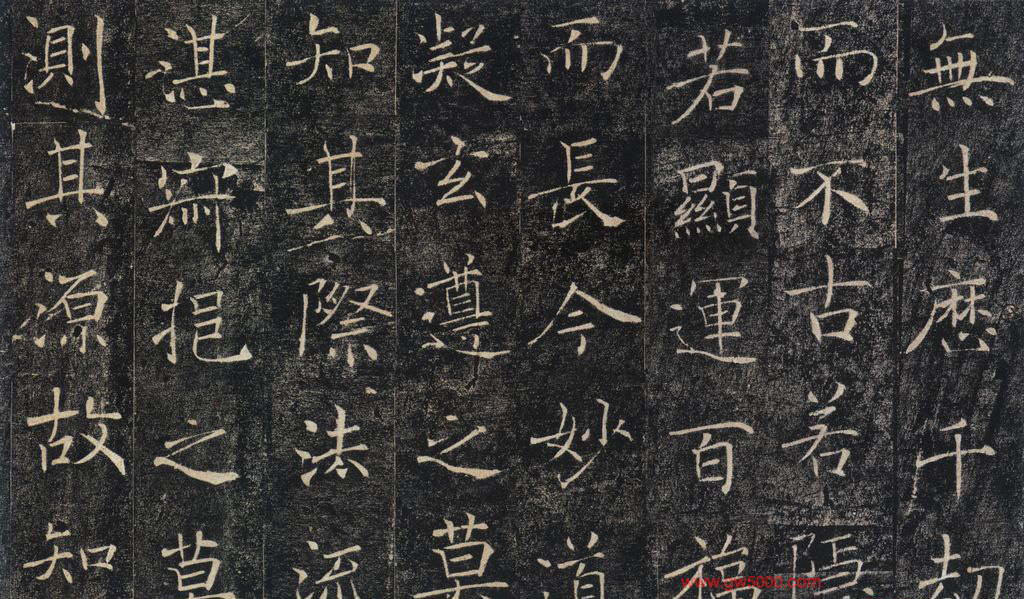 無生歷千劫
而不古若隱
若顯運百福
而長今妙道
凝玄遵之莫
知其際法流
湛寂挹之莫
測其源故知
www.gw5000.com